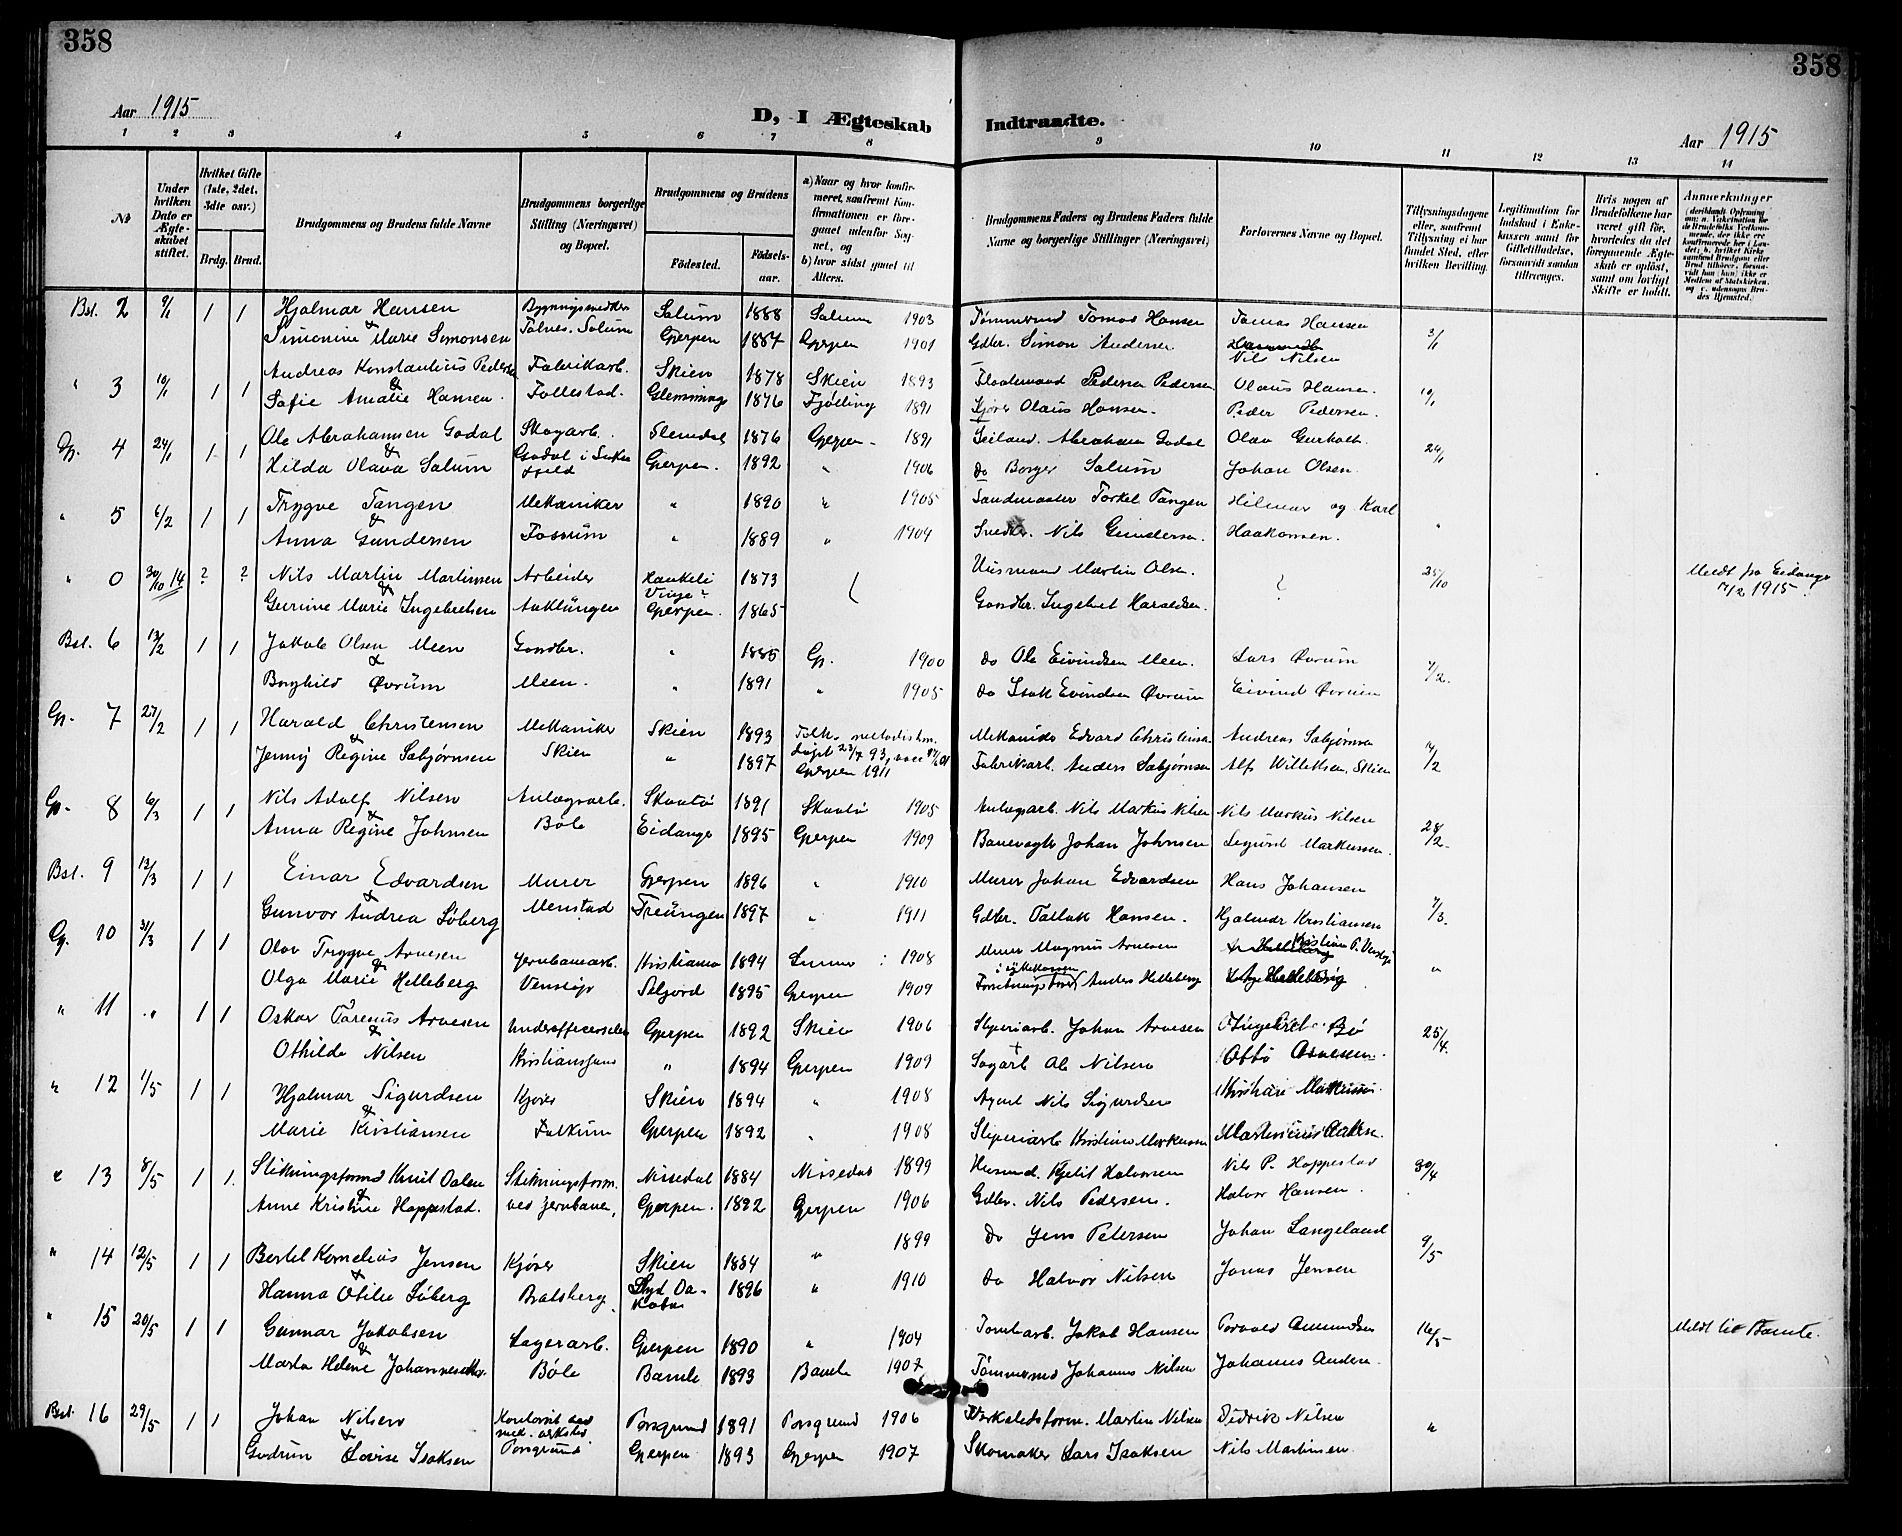 358
358
Aar 1915
D, I Ægteskab
Indtraadte.
Aar 1915
1 2 3 4 5 6 7 8 9 10 11 12 13 14
No
Under hvilken Dato er Ægteskabet stiftet.
Hvilket Gifte (1ste, 2det, 3die osv.)
Brdg. Brud.
Brudgommens og Brudens fulde Navne
Brudgommens borgerlige Stilling (Næringsvei) og Bopæl.
Brudgommens og Brudens
Fødested.
Fødselsaar.
a) Naar og hvor konfirmeret, saafremt Konfirmationen er foregaaet udenfor Sognet, og
b) hvor sidst gaaet til Alters.
Brudgommens Faders og Brudens Faders fulde Navne og borgerlige Stillinger (Næringsvei)
Forlovernes Navne og Bopæl.
Tillysningsdagene eller, saafremt Tillysning ei har fundet Sted, efter hvilken Bevilling.
Legitimation for Indskud i Enkekassen samt for Giftetilladelse, forsaavidt saadan tiltrænges.
Hvis nogen af Brudefolkene har været gift før, hvorledes da det foregaaende Ægteskab er opløst, samt om lovligt Skifte er holdt.
Anmærkninger
Bsl. 2 9/1 1 1 Hjalmar Hansen Solum 1888 Solum 1903 Tømmermd Tomas Hansen Tomas Hansen 3/1
& Simonine Marie Simonsen Solum Gjerpen 1887 Gjerpen 1901 Gdbr. Simon Andersen Nils Nilsen
" 3 10/1 1 1 Andreas Konstantius Pedersen Fabrikarb. Skien 1878 Skien 1893 Pedersen Olaus Hansen 10/1
& Sofie Amalie Hansen. Follestad. Glemming 1876 Tjølling 1891 Olaus Hansen. Peder Pedersen.
Gp. 4 24/1 1 1 Ole Abrahamsen Godal Skogarb. Slemdal 1876 Gjerpen 1891 Abraham Godal Olav 24/1
& Hilda Olava Solum Godal i Gjerpen. 1892 " 1906 do Borger Solum Johan Olsen.
" 5 6/2 1 1 Trygve Tangen Mekaniker " 1890 " 1905 Torkel Tangen Hilmar og Karl "
& Anna Gundersen Fossum " 1889 " 1904 Snedker. Nils Gundersen. Haakonsen.
" 0 30/10 14 ? ? Nils Martin Martinsen Arbeider Haukeli Vinje? 1873 Husmand Martin Olsen. ? 25/10 Meldt fra Eidanger
& Gurine Marie Ingebretsen Gjerpen. 1865 Gaardbr. Ingebret Haraldsen. 1915
Bsl. 6 13/2 1 1 Jakob Olsen Meen Gaardbr. " 1885 Gp. 1900 do Ole Eivindsen Meen. Lars Øvrum 7/2.
& Borghild Øvrum Meen. " 1891 " 1905 do Isak Evindsen Øvrum Eivind Øvrum
Gp. 7 27/2 1 1 Harald Christensen Mekaniker Skien 1893 Edvard Christensen Andreas Sabjørnsen 14/2
& Jenny Regine Sabjørnsen Skien " 1897 Gjerpen 1911 Fabrikarb. Anders Sabjørnsen Alf Willetsen, Skien
Gp. 8 6/3 1 1 Nils Adolf Nilsen Anlægsarb. Skaatø 1891 Skaatø 1905 Anlægsarb. Nils Markus Nilsen Nils Markus Nilsen 28/2
& Anna Regine Johnsen Bøle Eidanger 1895 Gjerpen 1909 Banevagt Johan Johnsen Sigurd Markussen.
Bsl. 9 13/3 1 1 Einar Edvardsen Murer Gjerpen 1896 " 1910 Murer Johan Edvardsen Hans Johansen 7/3.
& Gunvor Andrea Søberg Menstad Treungen 1897 " 1911 Gdbr. Tallak Hansen. Hjalmar Kristiansen
Gp. 10 31/3 1 1 Olav Trygve Arnesen Jernbanearb. Kristiania 1894 1908 Murer Magnus Arnesen "
& Olga Marie Helleberg Venstøp Seljord 1895 Gjerpen 1909 Anders Helleberg
" 11 " 1 1 Oskar Tarenus Arnesen Underofficerselev Gjerpen 1892 Skien 1906 Sliperiarb. Johan Arnesen Bø 25/4.
& Othilde Nilsen Kristianssand " 1894 Gjerpen 1909 Sagarb. Ole Nilsen Otto Arnesen.
" 12 1/5 1 1 Hjalmar Sigurdsen Kjører Skien 1894 " 1908 Agent Nils Sigurdsen
& Marie Kristiansen Falkum Gjerpen 1892 " 1908 Sliperiarb. Kristian Markussen
" 13 8/5 1 1. Stikningsformd Knut Dalen Stikningsform. Nissedal 1884 Nissedal 1899 Husmd. Kjetil Halvorsen Nils P. Hoppestad 30/4
& Anne Kristine Hoppestad. ved Jernbanen, Gjerpen. 1892 Gjerpen 1906 Gdbr. Nils Pedersen. Halvor Hansen.
" 14 12/5 1 1 Bertel Kornelius Jensen Kjører Skien 1884 " 1899 do Jens Petersen Johan Langeland 9/5
& Hanna Otilie Søberg Bratsberg Syd Dakota 1896 " 1910 do Halvor Nilsen Jonas Jensen
" 15 20/5 1 1 Gunnar Jakobsen Lagerarb. Gjerpen 1890 " 1904 Tomtearb. Jakob Hansen Torvald Amundsen 16/5 Meldt til Bamle.
& Marta Helene Johannesdtr. Bøle Bamle 1893 Bamle 1907 Tømmermd Johannes Nilsen Johannes Anders.
Bsl. 16 29/5 1 1 Johan Nilsen Porsgrund 1891 Porsgrund 1906 Verkstedsform. Martin Nilsen Didrik Nilsen "
& Gudrun Lovise Isaksen Porsgrund Gjerpen 1893 Gjerpen 1907 Skomaker Lars Isaksen Nils Martinsen